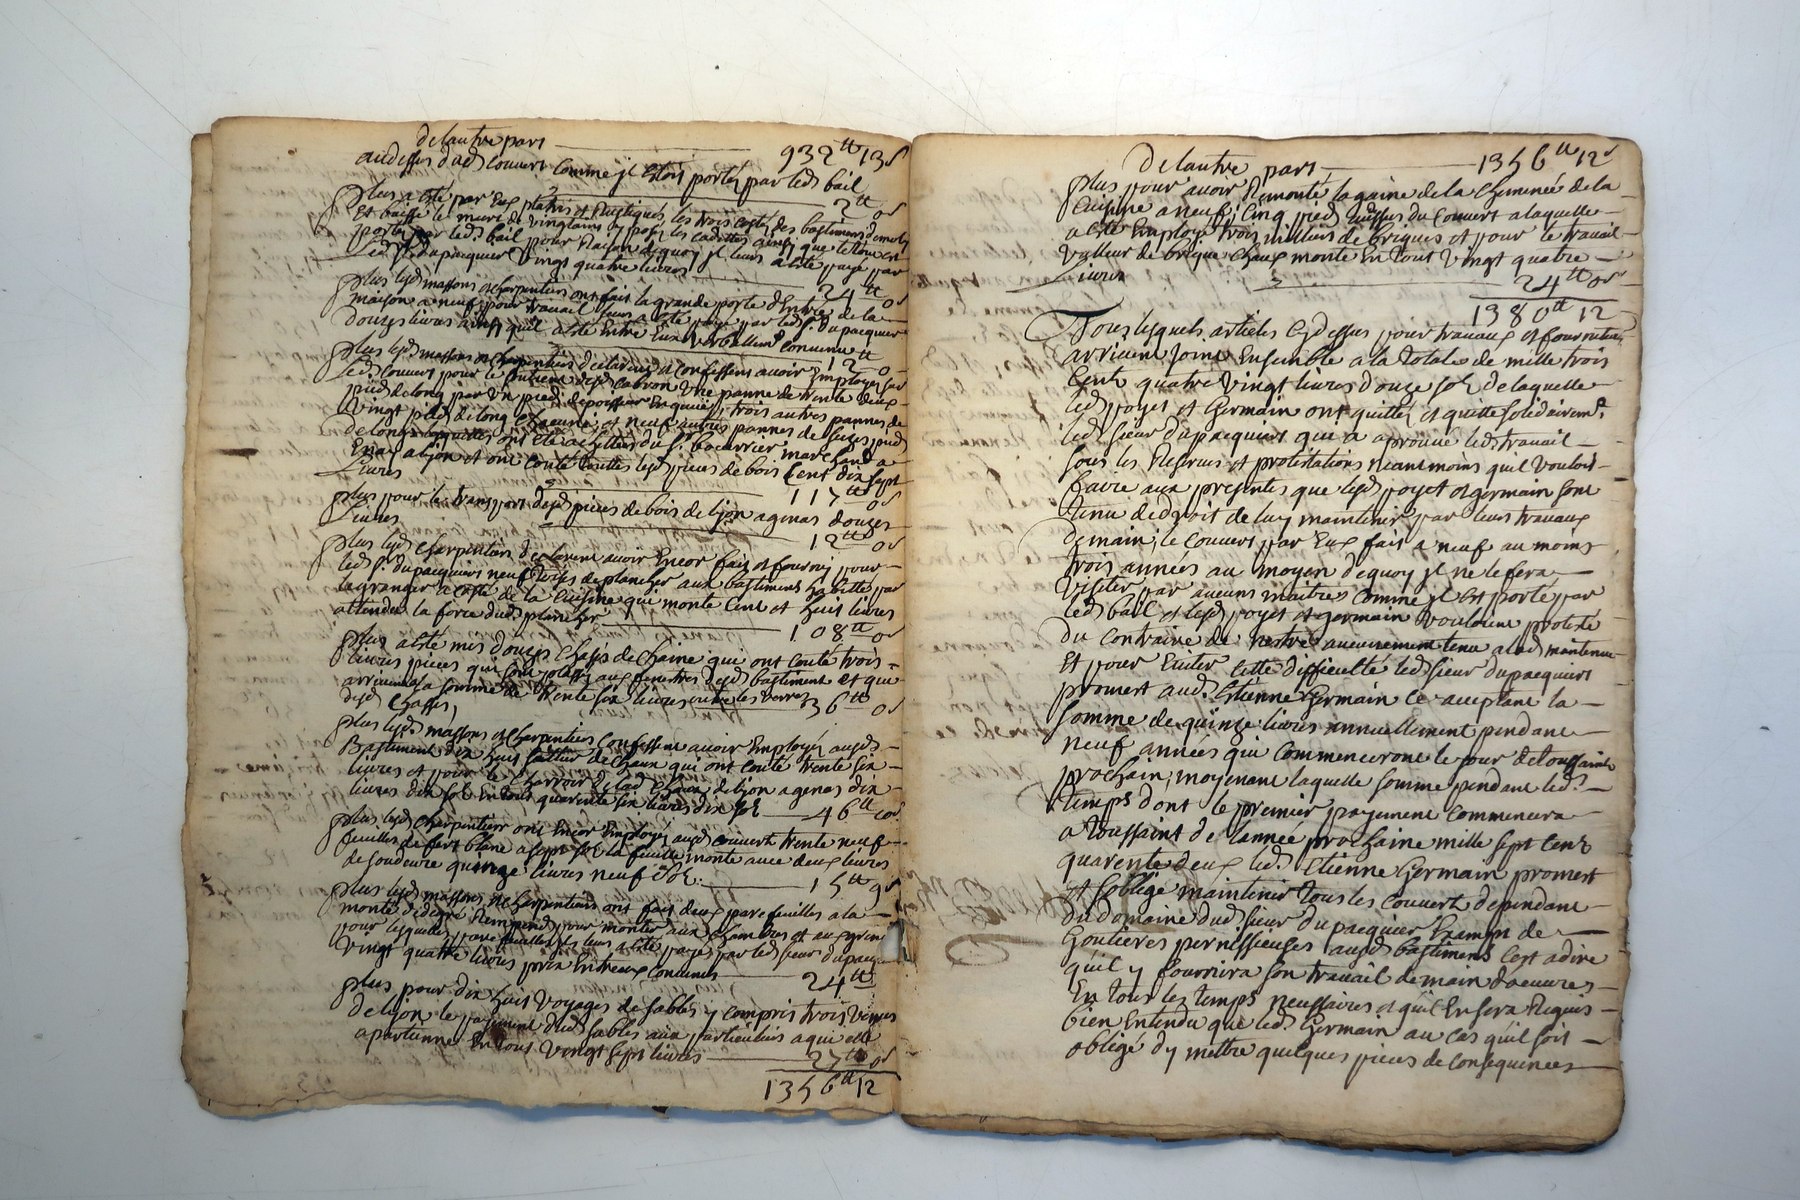 Delautre part 932 tt 13 s
audessus dud. couvert comme jl estois porté par led. bail
2 tt 0 s
plus a esté par Eux platris et Rustiqués les trois costés des bastiments
Et baissé le mur de vingtains y posé les cadettes ainsy que le tout est
porté par led. bail pour Raison dequoy jl leurs a esté payé par
Led. Sr. dupacquier vingt quatre livres
24 tt 0 s
plus lesd. massons et charpentiers ont fait la grande porte d'Entrée de la
maison a neuf pour travail leurs a esté payé par led. Sr. dupacquier
Douzes livres ainsy quil a esté Entre Eux verballemt. convenu
12 tt 0 s
plus lesd. massons et charpentiers declarent et confessent avoir Employés sur
Led. couvert pour le soutient desd. cabron Une panne de trente deux
pieds de long par Un pied depoisseur En quiers, trois autres pannes de
Vingt pieds de long chacune, et neuf autres pannes de seizes pieds
de long lesquelles ont été achettées du Sr. bourrier marchand a
Enay a lyon et ont couté touttes lesd. pieces de bois Cent dix sept
Livres 117 tt 0 s
plus pour le transport desd. pieces de bois de lyon a genas douzes
Livres 12 tt 0 s
plus lesd. charpentiers declarent avoir Encor fait et fourny pour
led. Sr. dupacquiers neuf toizes de plancher aux bastiments habitté par
la granger a costé de la Cuisine qui monte Cent et huit livres
attendu la force dud. plancher 108 tt 0 s
plus a esté mis douzes chasis de chaine qui ont couté trois
livres pieces qui sont posés aux fenestres desd. bastiment et qui
arrivent a la somme de trente six livres outre les verres 36 tt 0 s
desd. chassis,
plus lesd. massons et charpentiers confessent avoir Employés ausd.
Bastiment dix huit de chaux qui ont couté trente six
livres et pour le charroir de lad. chaux de lyon a genas dix
livres dix sols En tous quarente six livres dix sols 46 tt 10 s
plus lesd. charpentiers ont Encor Employés ausd. couvert trente neuf
feuilles de fert blanc a sept sols la feuille monte avec deux livres
de soudeure quinze livres neuf sols 15 tt 9 s
plus lesd. massons et charpentiers ont fait deux parefeuilles a la
montée pour monter aux chambres et au grenier
pour lesquelles parefeuilles jl leurs a esté payés par led. sieur dupacquier
vingt quattre livres prix Entreux convenus
24 tt
plus pour dix huit voyages de sables y compris trois venus
de lyon le payement dud. sables aux particuliers a qui elle
apartenne En tous Vingt sept livres 27 tt 0 s
1356 tt 12
Delautre part 1356 tt 12 s
plus pour avoir Remonté la gaine de la cheminée de la
Cuisine a neuf, cinq pieds audessus du couvert a laquelle
a esté Employé trois milliers de briques et pour le travail
valleur de brique chaux monte En tout Vingt quatre
Livres 24 tt 0 s
1380 tt 12
Tous lesquels articles cydessus pour travaux et fournitures
arrivent Joint Ensemble a la totale de mille trois
Cent quatre vingt livres douze sols de laquelle
led. poyet et Germain ont quittés et quitte solidairemt.
led. sieur dupacquiers qui a aprouvé led. travail
sous les Reserves et protestations neantmoins quil vouloit
faire aux presentes que lesd. poyet et germain sont
tenu dedroit de luy maintenir par leurs travaux
demain, le couvert par Eux fait a neuf au moins
trois années au moyen dequoy jl ne le fera
Visiter par aucuns maitres comme jl est porté par
led. bail et lesd. poyet et germain vouloint protesté
du contraire de nestre aucunement tenu a lad. maintenue
Et pour Eviter cette difficulté led. sieur dupacquiers
promest aud. Etienne Germain ce acceptant la
somme de quinze livres annuellement pendant
neuf années qui commenceront le jour de toussaints
prochain, moyenant laquelle somme pendant led.
temps dont le premier payement commencera
a toussaint de l'année prochaine mille sept cent
quarente deux led. Etienne Germain promest
et soblige maintenir tous les couvert dependant
du domaine dud. sieur dupacquier Exempt de
Goutieres pernissieuses ausd. bastiments cest adire
quil y fournira son travail demain daeuvres
En tous les temps nessaires et quil En sera Requis
bien Entendu que led. Germain au cas quil soit
obligé dy mettre quelques pieces de consequences